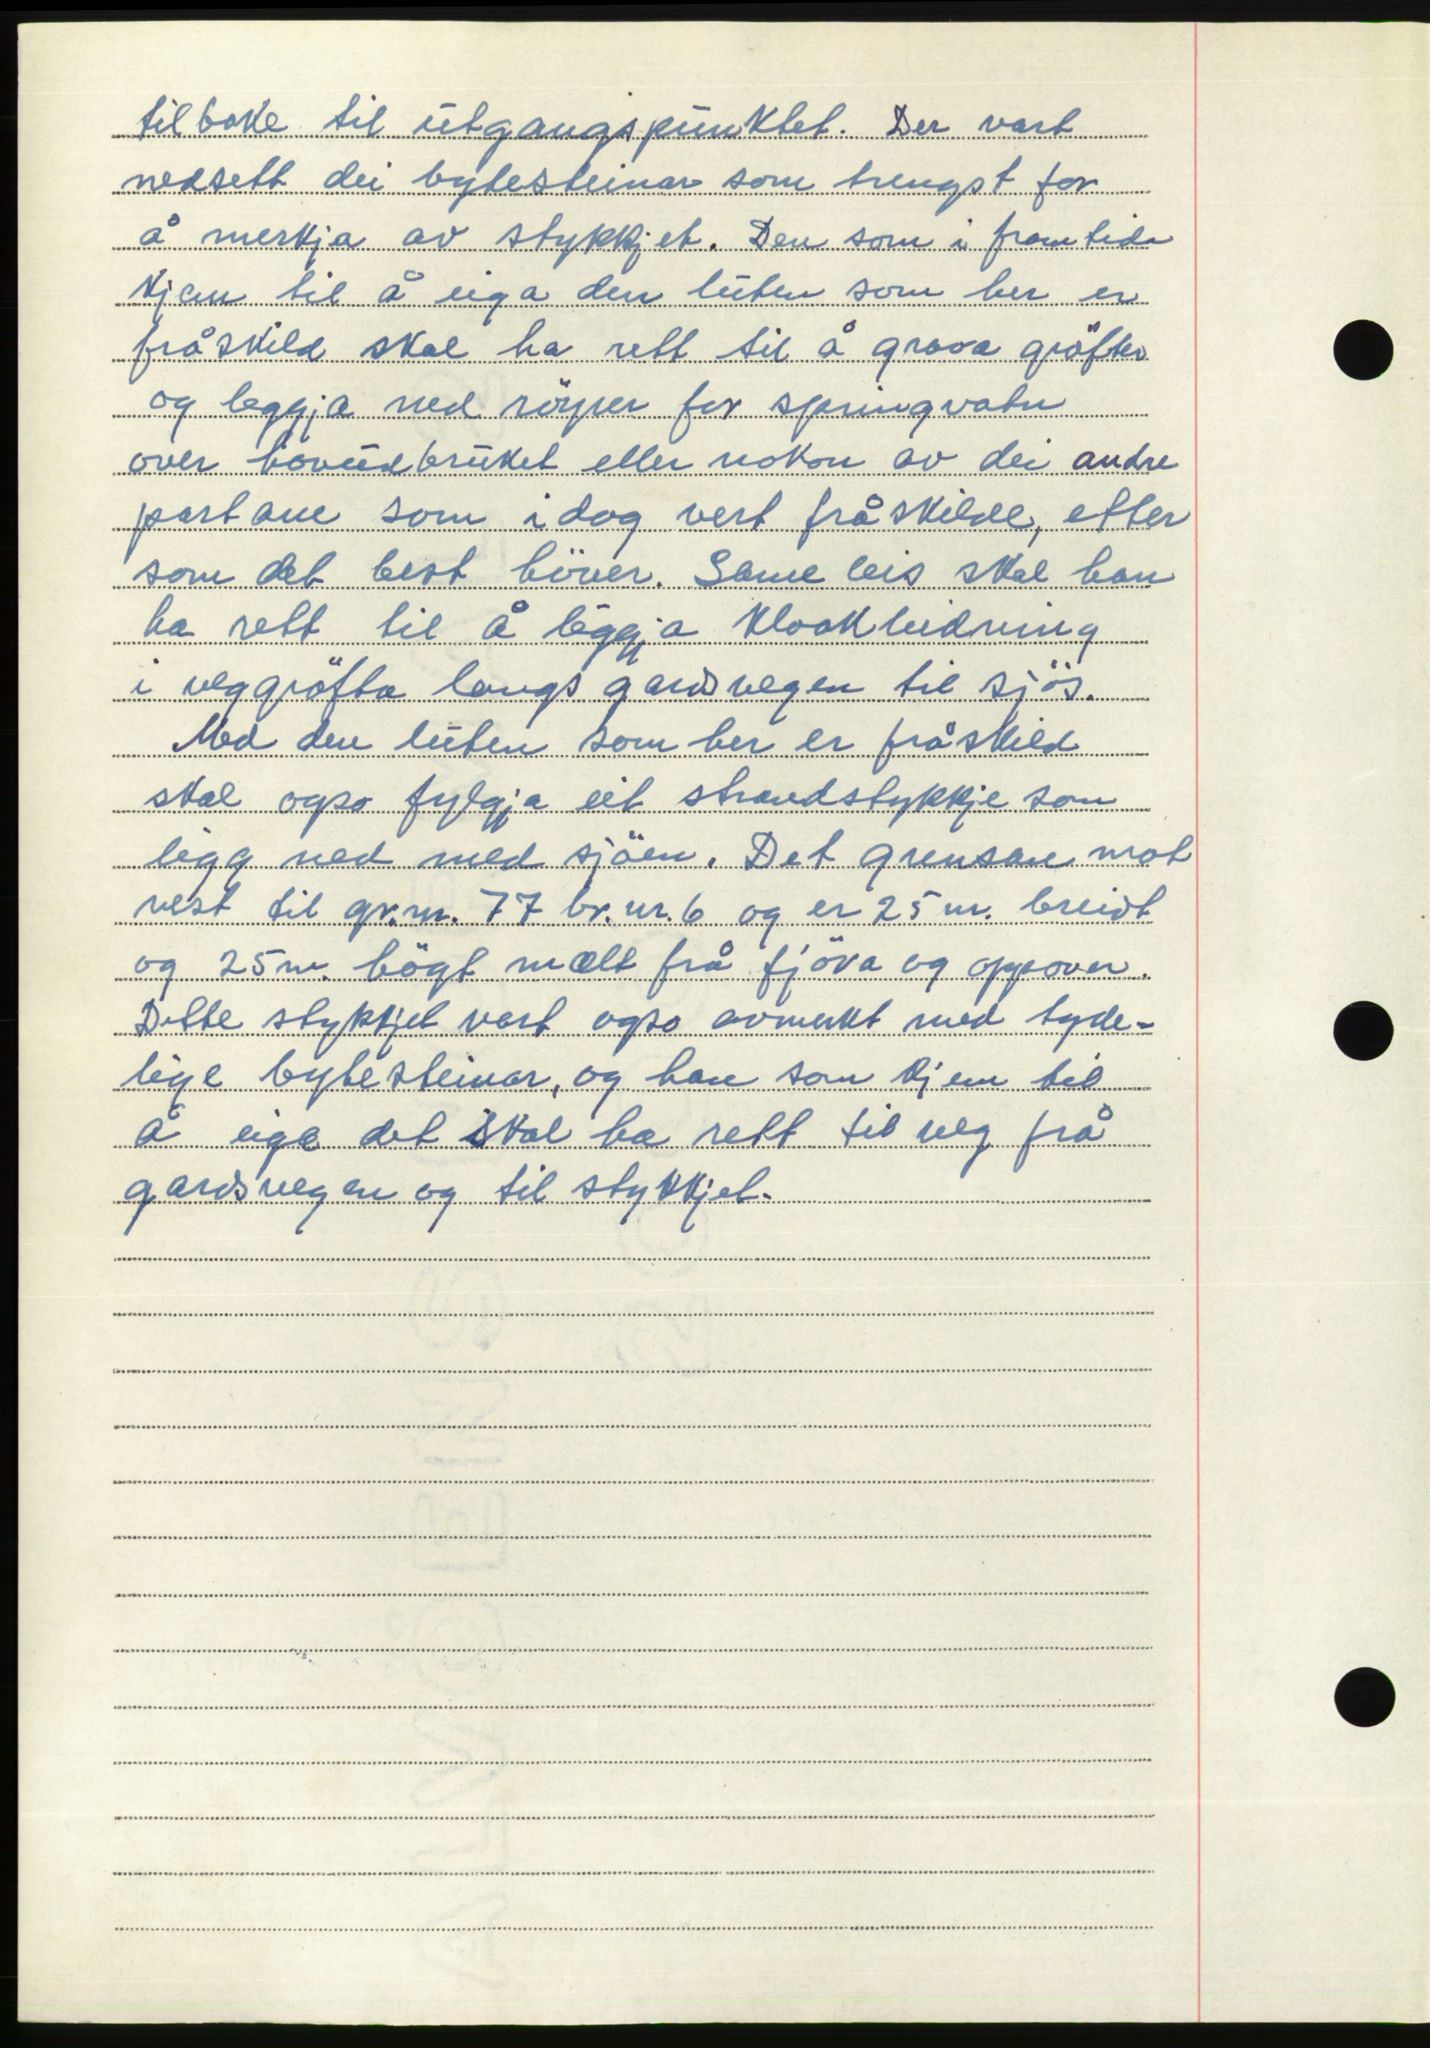 tilbake til utgangspunktet. Der vart
nedsett dei bytesteinar som trengst for
å merkja av stykkjet. Den som i framtida
kjem til å eiga den luten som her er
fråskild skal ha rett til å grava gröfter
og leggja ned röyrer for springvatn
over hovudbruket eller nokon av dei andre
partane som idag vert fråskilde, etter
som det best höver. Same leis skal han
ha rett til å leggja kloakkleidning
i veggröfta langs gardsvegen til sjös.
Med den luten som her er fråskild
skal ogso fylgja eit strandstykkje som
ligg ned med sjöen. Det grensar mot
vest til gr.nr. 77 br.nr. 6 og er 25 m. breidt
og 25 m. högt mælt frå fjöra og oppover.
Dette stykkjet vart ogso avmerkt med tyde-
lige bytesteinar, og han som kjem til
å eige det skal ha rett til veg frå
gardsvegen og til stykkjet.